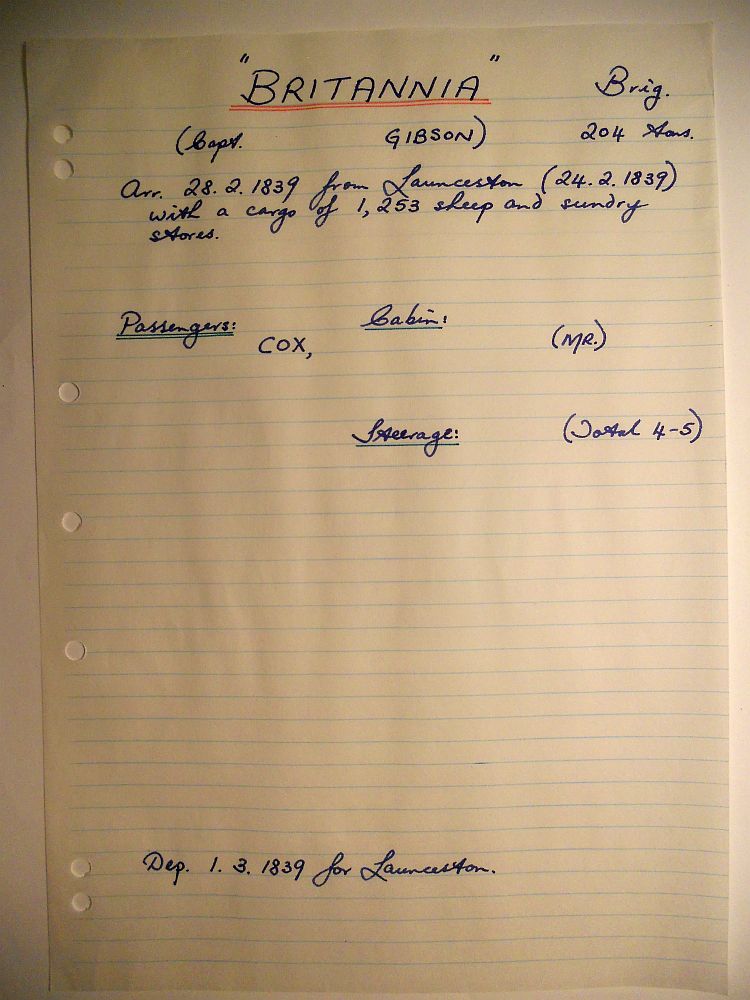 "BRITANNIA" Brig.
(Capt. GIBSON) 204 tons.
Arr. 28. 2. 1839 from Launceston (24. 2. 1839)
with a cargo of 1,253 sheep and sundry
stores.
Passengers: Cabin:
COX, (MR.)
Steerage: (Total 4-5)
Dep. 1. 3. 1839 for Launceston.